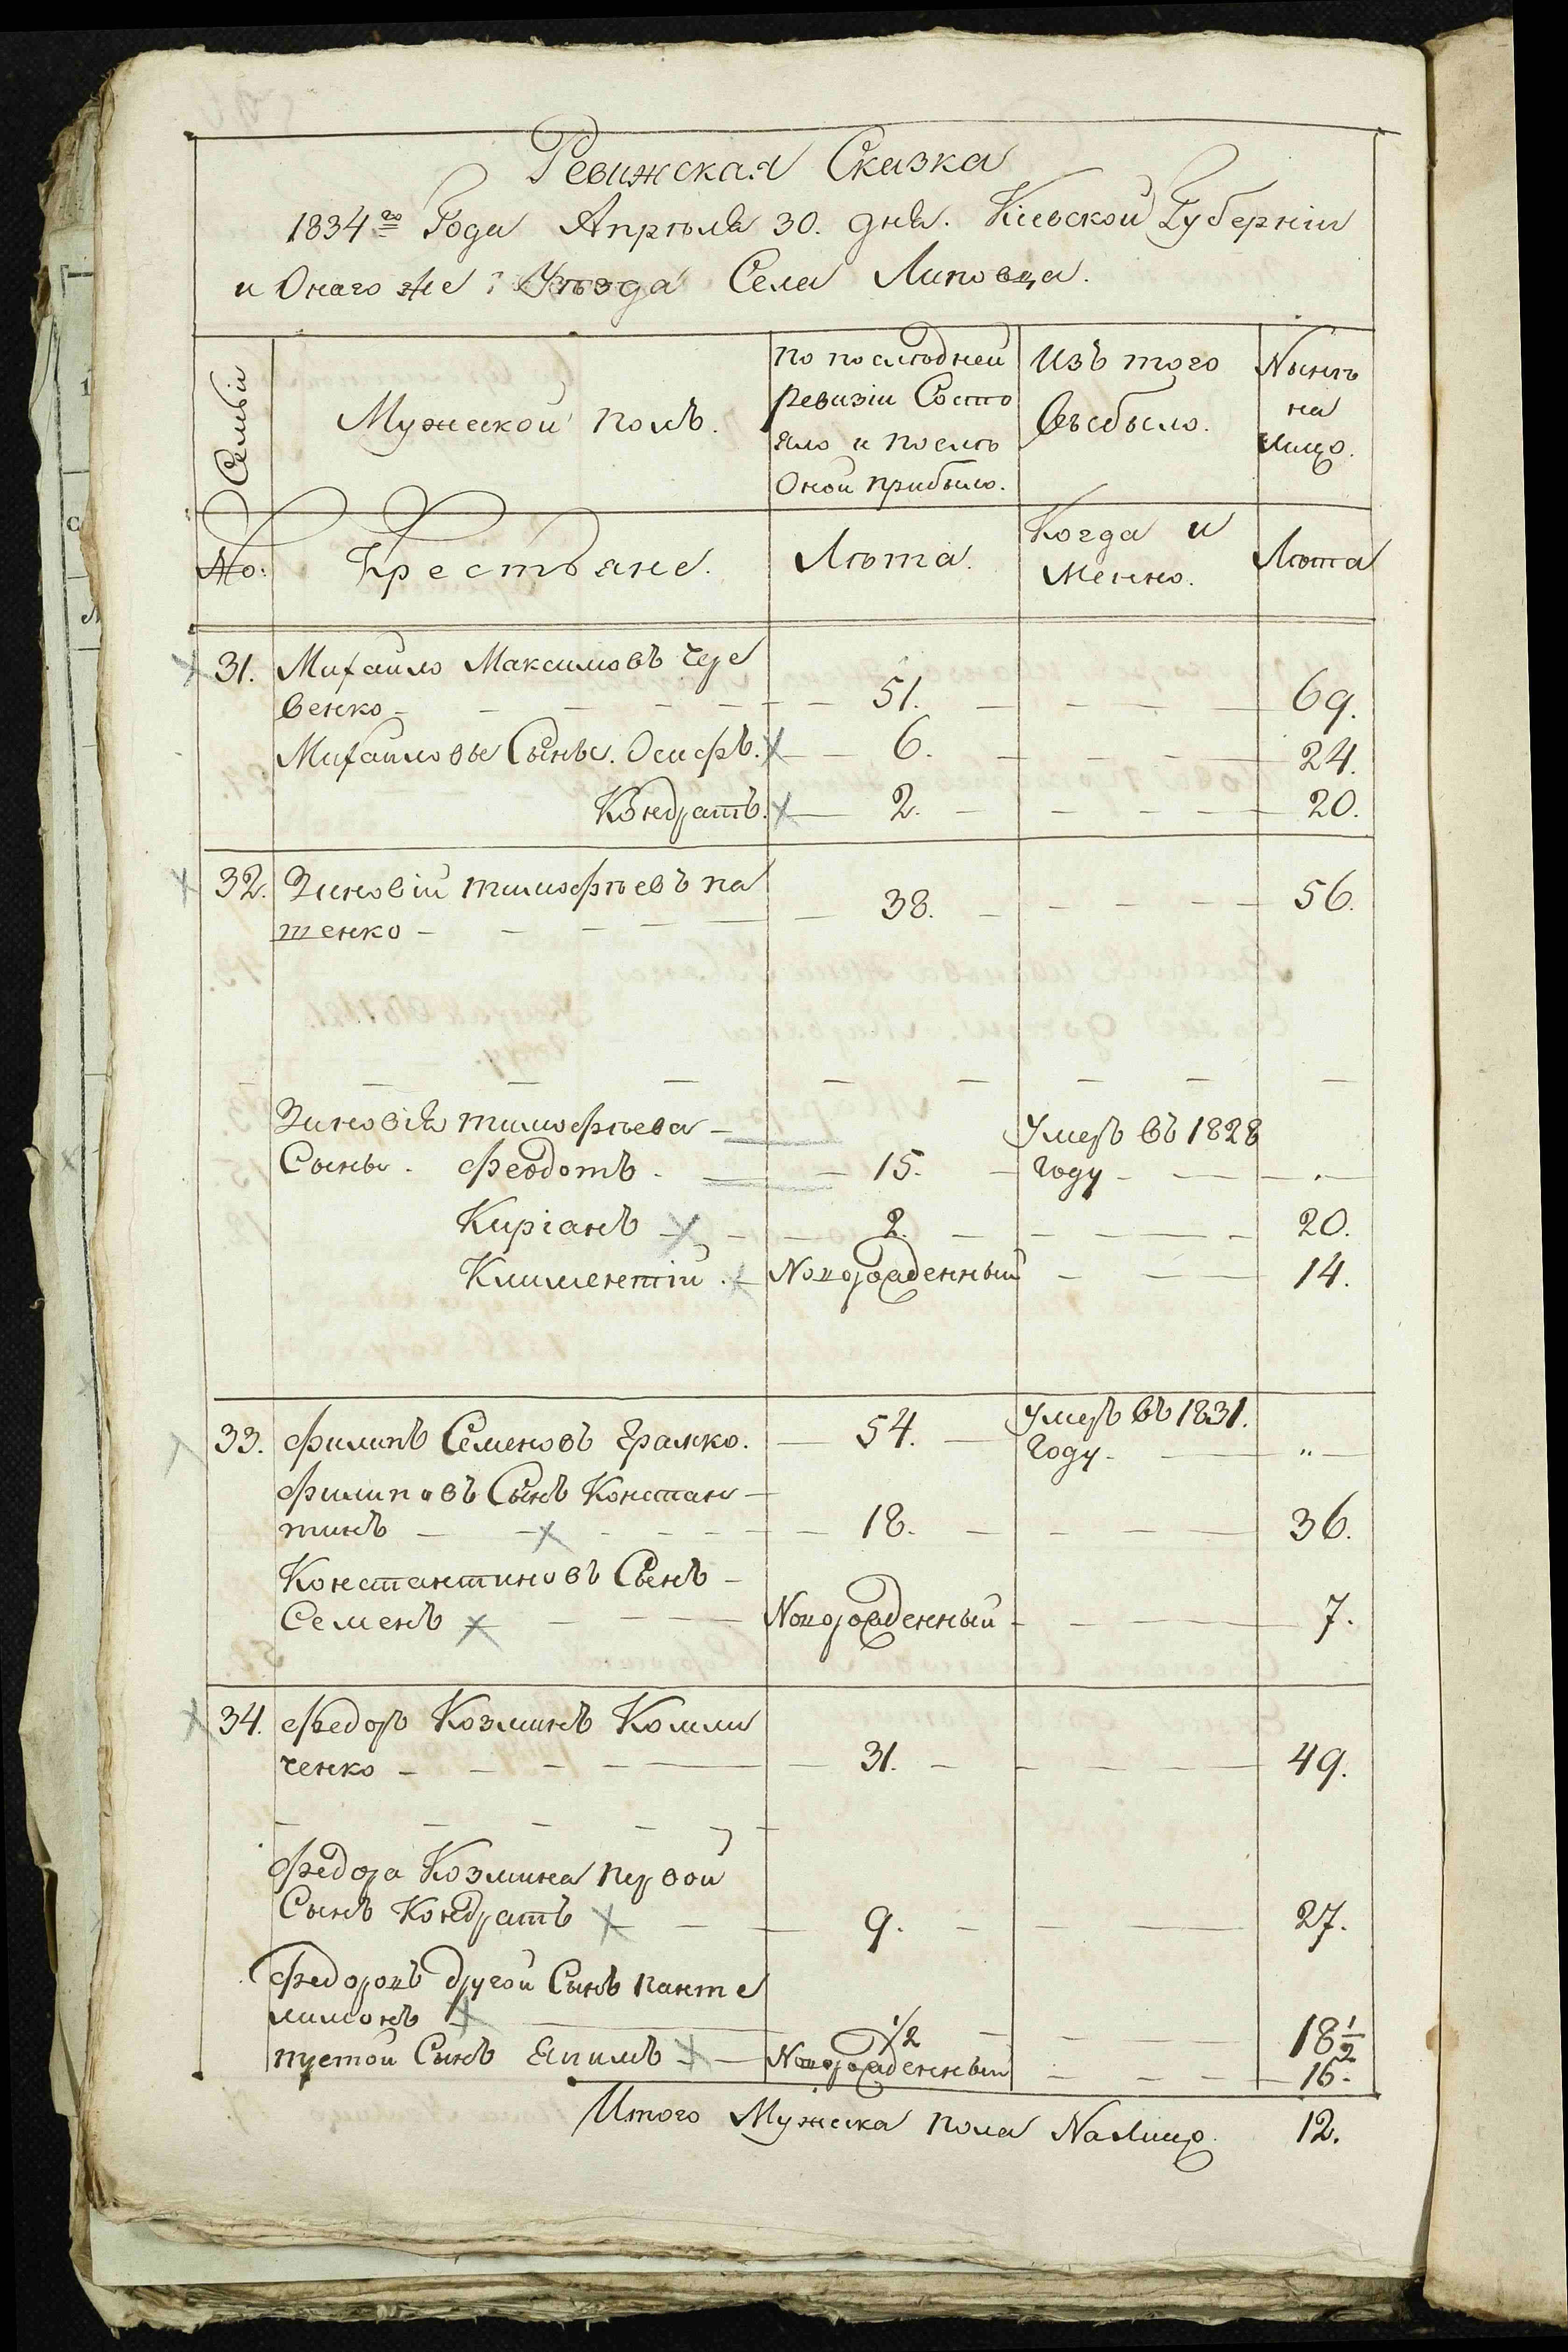 Ревижская Сказка
1834го Года Апрѣля 30. дня. Кіевской Губерніи
и Онаго же Уѣзда Села Липовца.
Семьи
Мужеской полъ.
по последней
ревизіи Состо
яло и послѣ
Оной прибыло.
Изъ того
выбыло.
Nынѣ
на
лицо.
No:
Крестьяне.
Лѣта.
Когда и
Менно.
Лѣта
31. Михайло Максимовъ чере
венко - 51. 69.
Михайловы Сыны. Осифъ. 6. 24.
Кондратъ. 2. 20.
32. Зиновій тимофѣевъ па
тенко - 38. 56.
Зиновія тимофѣева -
Сыны. феодотъ. 15. Умеръ въ 1828
году -
Киріанъ 2. 20.
Климентій. Nоворожденный 14.
33. филипъ Семеновъ Грамко. 54. Умеръ въ 1831.
году - "
филиповъ Сынъ Констан -
тинъ - 18. 36.
Константиновъ Сынъ -
Семенъ Nоворожденный 7.
34. федоръ Козминъ Колли
ченко - 31. 49.
федора Козмина первой
Сынъ Кондратъ 9. 27.
федоровъ другой Сынъ панте
лимонъ 1/2 18 1/2
третой Сынъ Япимъ Nоворожденный 16.
Итого Мужеска пола Nалицо. 12.